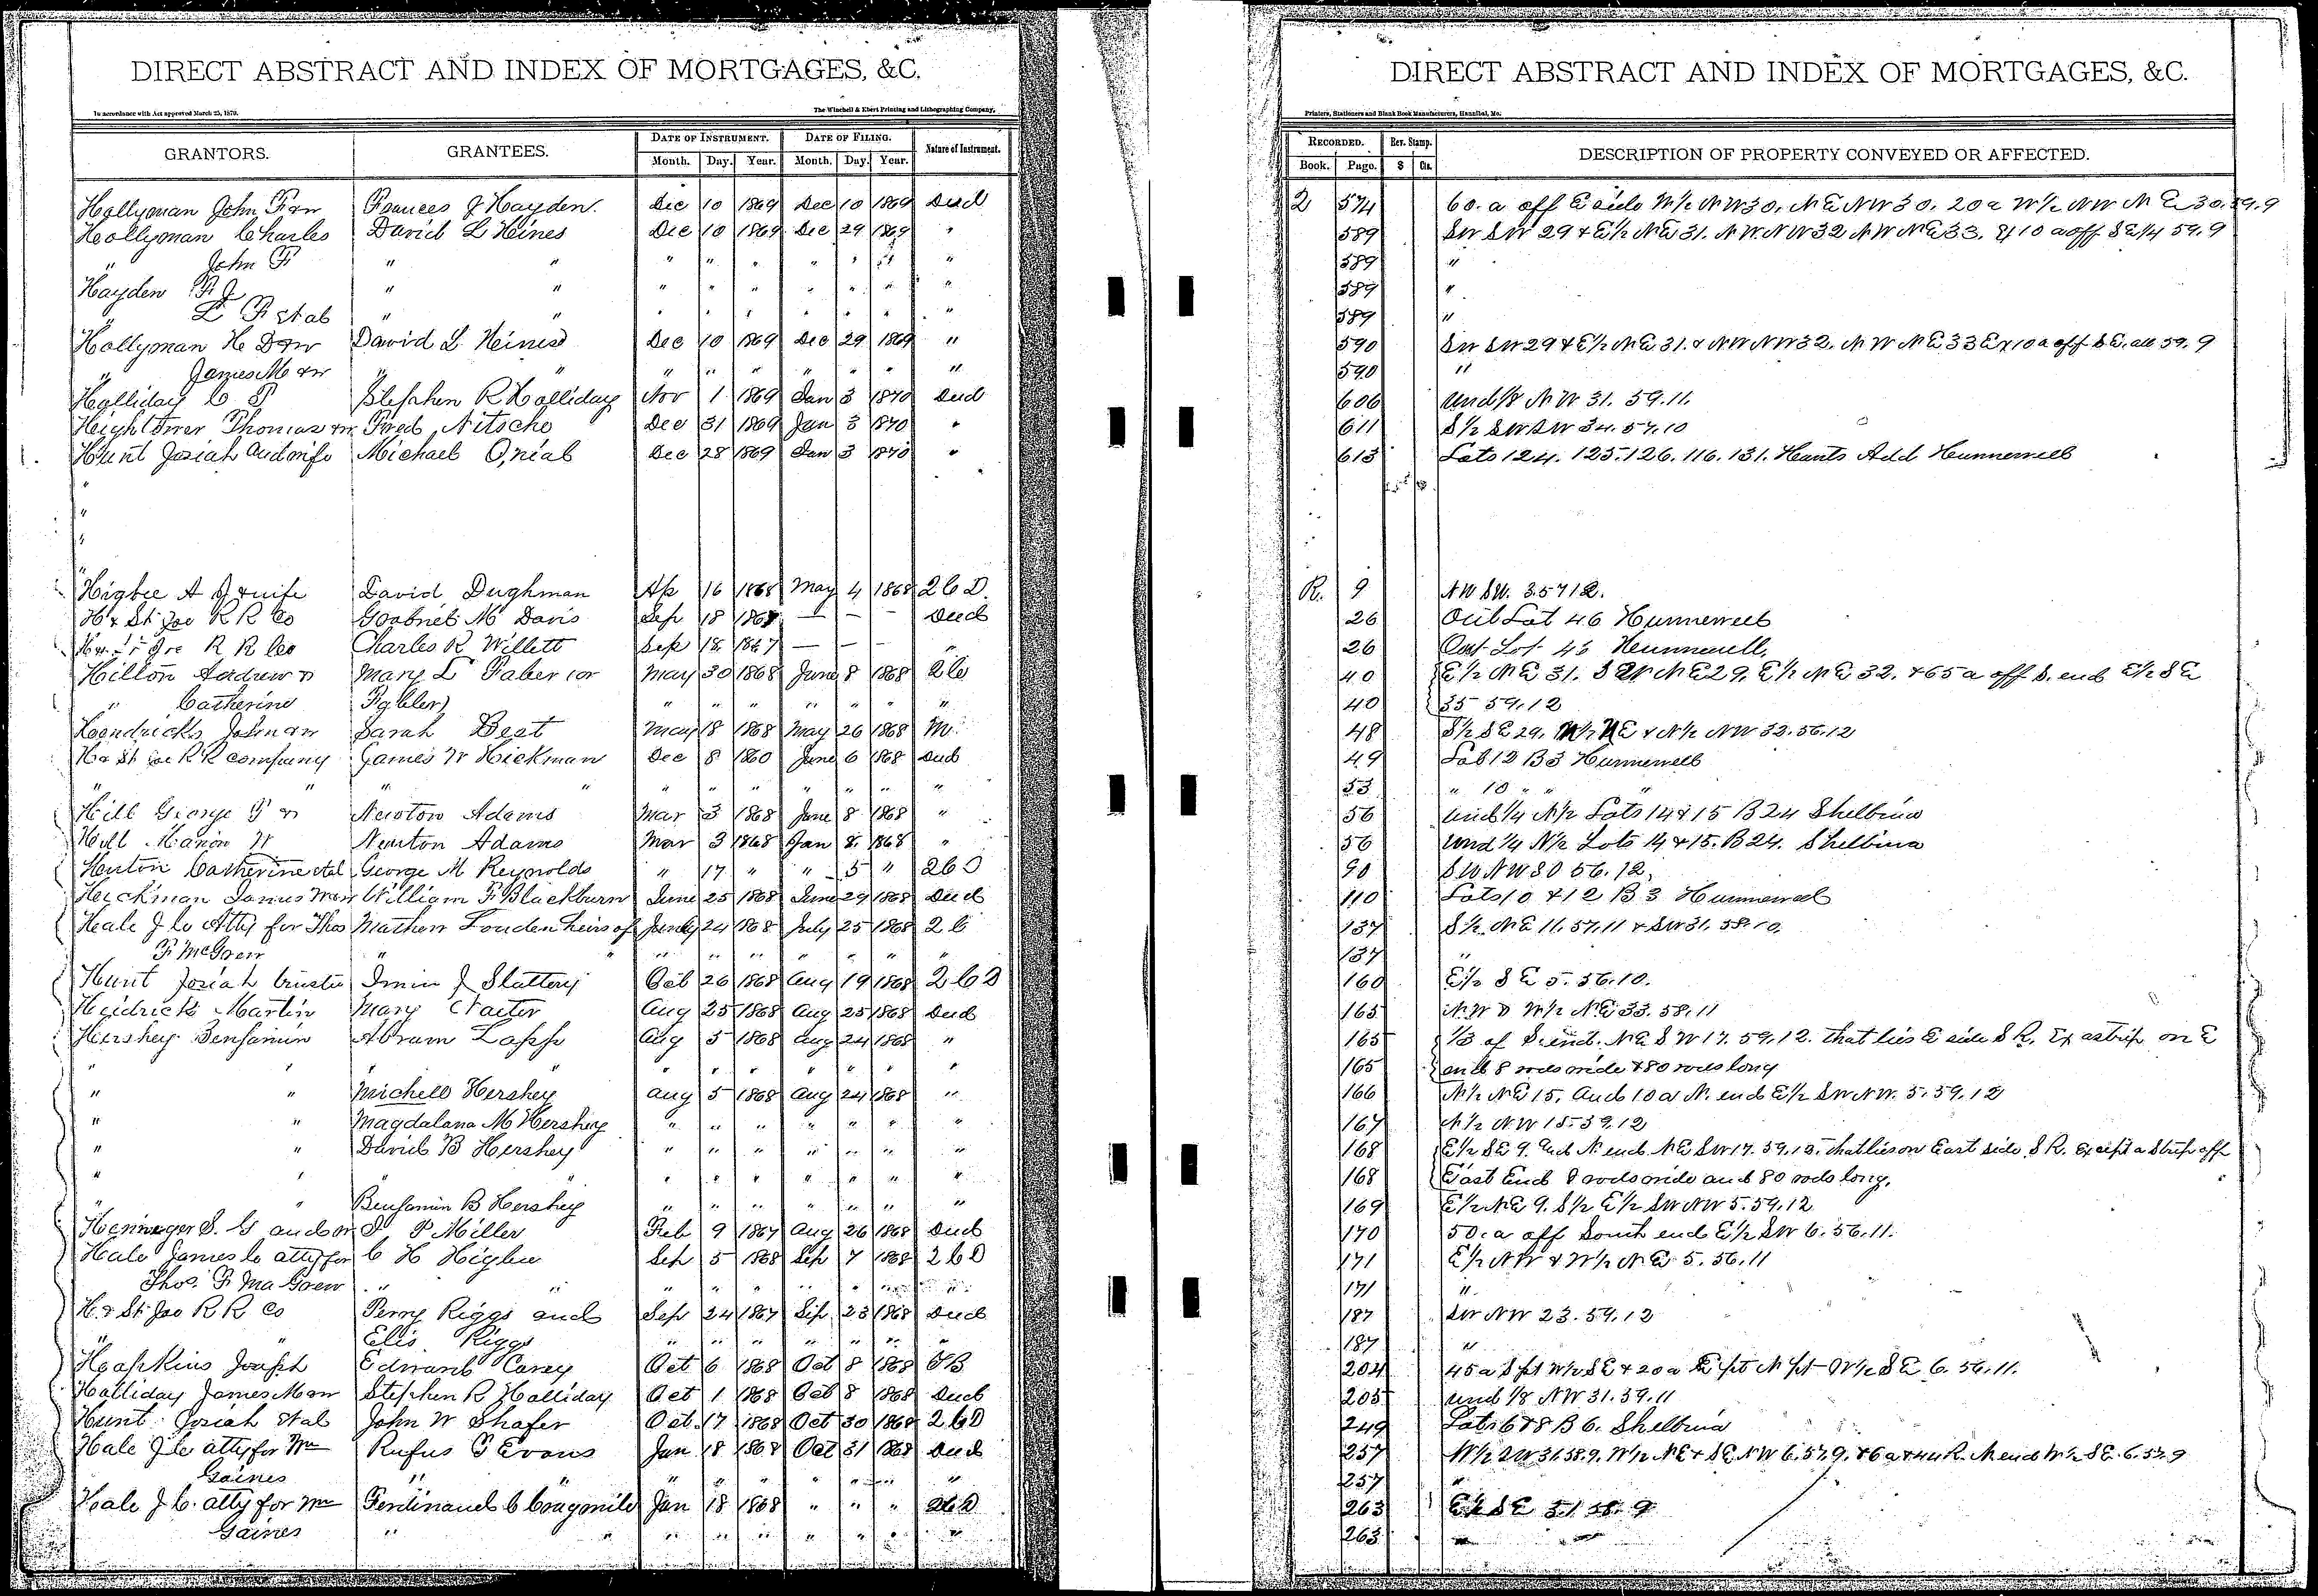 DIRECT ABSTRACT AND INDEX OF MORTGAGES, &C.
In accordance with Act approved March 25, 1870.
The Winchell & Ebert Printing and Lithographing Company,
GRANTORS. GRANTEES. DATE OF INSTRUMENT. DATE OF FILING. Nature of Instrument.
Month. Day. Year. Month. Day. Year.
Hollyman John F & w Frances J Hayden. Dec 10 1869 Dec 10 1869 Deed
Hollyman Charles David L Heines Dec 10 1869 Dec 29 1869 "
" John F " " " " " " " " "
Hayden F J " " " " " " " " "
L F et al " " " " " " " " "
Hollyman H D & w David L Heines Dec 10 1869 Dec 29 1869 "
" James M & w " " " " " " " " "
Halliday C T Stephen R Halliday Nov 1 1869 Jan 3 1870 Deed
Hightower Thomas & w Fred Nitsche Dec 31 1869 Jan 3 1870 "
Hunt Josiah and wife Michael O,niel Dec 28 1869 Jan 3 1870 "
"
"
"
"
Higbee A J & wife David Dughman Ap 16 1868 May 4 1868 2 C D.
H & St Joe R R Co Gabriel M Davis Sep 18 1867 — — — Deed
R R Co Charles R Willett Sep 18 1867 — — — "
Hilton Andrew & Mary L Faber or May 30 1868 June 8 1868 2 C
" Catherine " " " " " " "
Hendricks John & w Sarah Best May 18 1868 May 26 1868 M.
H & St Joe R R company James W Hickman Dec 8 1860 June 6 1868 Deed
" " " " " " " " " " "
Hill George T & Newton Adams Mar 3 1868 June 8 1868 "
Hill Marion W Newton Adams Mar 3 1868 Jan 8 1868 "
Henton Catherine et al George M Reynolds " 17 " " 5 " 2 C D
Heickman James W & w William F Blackburn June 25 1868 June 29 1868 Deed
Heale J C Atty for Thos Mathew Louden heirs of 24 1868 July 25 1868 2 C
F McGrew " " " " " " " "
Hunt Josiah trustee J Slattery Oct 26 1868 Aug 19 1868 2 C D
Heidrick Martin Mary Aug 25 1868 Aug 25 1868 Deed
Hershey Benjamin Abram Lapp Aug 5 1868 Aug 24 1868 "
" " " " " " " " " " "
" " Michell Hershey Aug 5 1868 Aug 24 1868 "
" " Magdalana M Hershey " " " " " " "
" " David B Hershey " " " " " " "
" " " " " " " " "
" " Benjamin B Hershey " " " " " " "
Heninger S. G and w P Miller Feb 9 1867 Aug 26 1868 Deed
Hale James C atty for C H Higbee Sep 5 1868 Sep 7 1868 2 C D
Thos. F Ma Grew " " " " " " " " "
H. & St Joe R R Co Perry Riggs and Sep 24 1867 Sep 23 1868 Deed
" " Elis Riggs " " " " " " "
Hopkins Joseph Edward Carey Oct 6 1868 Oct 8 1868
Halliday James M & w Stephen R Halliday Oct 1 1868 Oct 8 1868 Deed
Hunt Josiah et al John W Shafer Oct 17 1868 Oct 30 1868 2 C D
Hale J C atty for Wm Rufus T Evans Jan 18 1868 Oct 31 1868 Deed
Gaines " " " " " " " " "
Hale J C. atty for Wm Ferdinand C Jan 18 1868 " " " 2 C D
Gaines " " " " " " " " "
DIRECT ABSTRACT AND INDEX OF MORTGAGES, &C.
Printers, Stationers and Blank Book Manufacturers, Hannibal, Mo.
RECORDED. Rev. Stamp. DESCRIPTION OF PROPERTY CONVEYED OR AFFECTED.
Book. Page. $ Cts.
Q 574 60. a off E side W½ NW 30, NE NW 30, 20 a W½ NW NE 30. 59. 9
589 SW SW 29 & E½ NE 31. NW NW 32 NW NE 33. Ex 10 a off SE¼ 59. 9
589 "
589 "
589 "
590 SW SW 29 & E½ NE 31. & NW NW 32. NW NE 33 Ex 10 a off SE. all 59. 9
590 "
606 und 1/8 NW 31. 59. 11.
611 S½ SW SW 34. 57. 10
613 Lots 124. 125. 126. 116. 131. Hunts Add Hunnewell
R. 9 NW SW. 3. 57 12.
26 Out Lot 46 Hunnewell
26 Out Lot 46 Hunnewell,
40 E½ NE 31. SW NE 29, E½ NE 32. & 65 a off S. end E½ SE
40 35 59. 12
48 S½ SE 29, W½ NE & N½ NW 32. 56. 12
49 Lot 12 B 3 Hunnewell
53 " 10 " " "
56 und ¼ N½ Lots 14 & 15 B 24 Shelbina
56 und ¼ N½ Lots 14 & 15. B 24. Shelbina
90 SW NW 30 56. 12,
110 Lots 10 & 12 B 3 Hunnewell
137 S½ NE 11. 57. 11 & SW 31. 58. 10.
137 "
160 E½ SE 5. 56. 10.
165 NW & W½ NE 33. 58. 11
165 1/3 of S. end. NE SW 17. 59. 12. that lies E side S R. Ex a strip on E
165 end 8 rods wide & 80 rods long
166 N½ NE 15, and 10 a N. end E½ SW NW. 5. 59. 12
167 N½ NW 15. 59. 12
168 E½ SE 9. and N end NE SW 17. 59. 12. that lies on East side S R. except a strip off
168 East End 8 rods wide and 80 rods long.
169 E½ NE 9. S½ E½ SW NW 5. 59. 12
170 50. a off South end E½ SW 6. 56. 11.
171 E½ NW & W½ NE 5. 56. 11
171 "
187 SW NW 23. 59. 12
187 "
204 45 a S pt W½ SE & 20 a E pt N pt W½ SE 6. 56. 11.
205 und 1/8 NW 31. 59. 11
249 Lots 6 & 8 B 6. Shelbina
257 W½ SW 31. 58. 9. W½ NE & SE NW 6. 57. 9. N end W½ SE. 6. 57. 9
257 "
263 E½ SE 31 58. 9
263 "